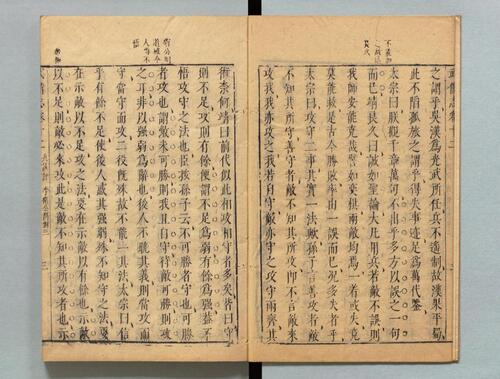 武備志卷十二
之謂乎吳漢為光武所任兵不遙制故漢果平蜀
此不陷孤旅之謂乎得失事迹足為萬代鑒
太宗曰朕觀千章萬句不出乎多方以誤之一句
而已靖良久曰誠如聖論大凡用兵若敵不誤則
我師安能克哉譬如奕棋兩敵均焉一著或失竟
莫能救是古今勝敗率由一誤而已况多失者乎
太宗曰攻守二事其實一法歟孫子言善攻者敵
不知其所守善守者敵不知其所攻即不言敵來
攻我我亦攻之我若自守敵亦守之攻守兩齊其
術柰何靖曰前代似此相攻相守者多矣皆曰守
則不足攻則有餘便謂不足為弱有餘為强蓋不
悟攻守之法也臣按孫子云不可勝者守也可勝
者攻也謂敵未可勝則我且自守待敵可勝則攻
之耳非以强弱為辭也後人不曉其義則當攻而
守當守而攻二役既殊故不能一其法太宗曰信
乎有餘不足使後人惑其强弱殊不知守之法要
在示敵以不足攻之法要在示敵以有餘也示敵
以不足則敵必來攻此是敵不知其所攻者也示